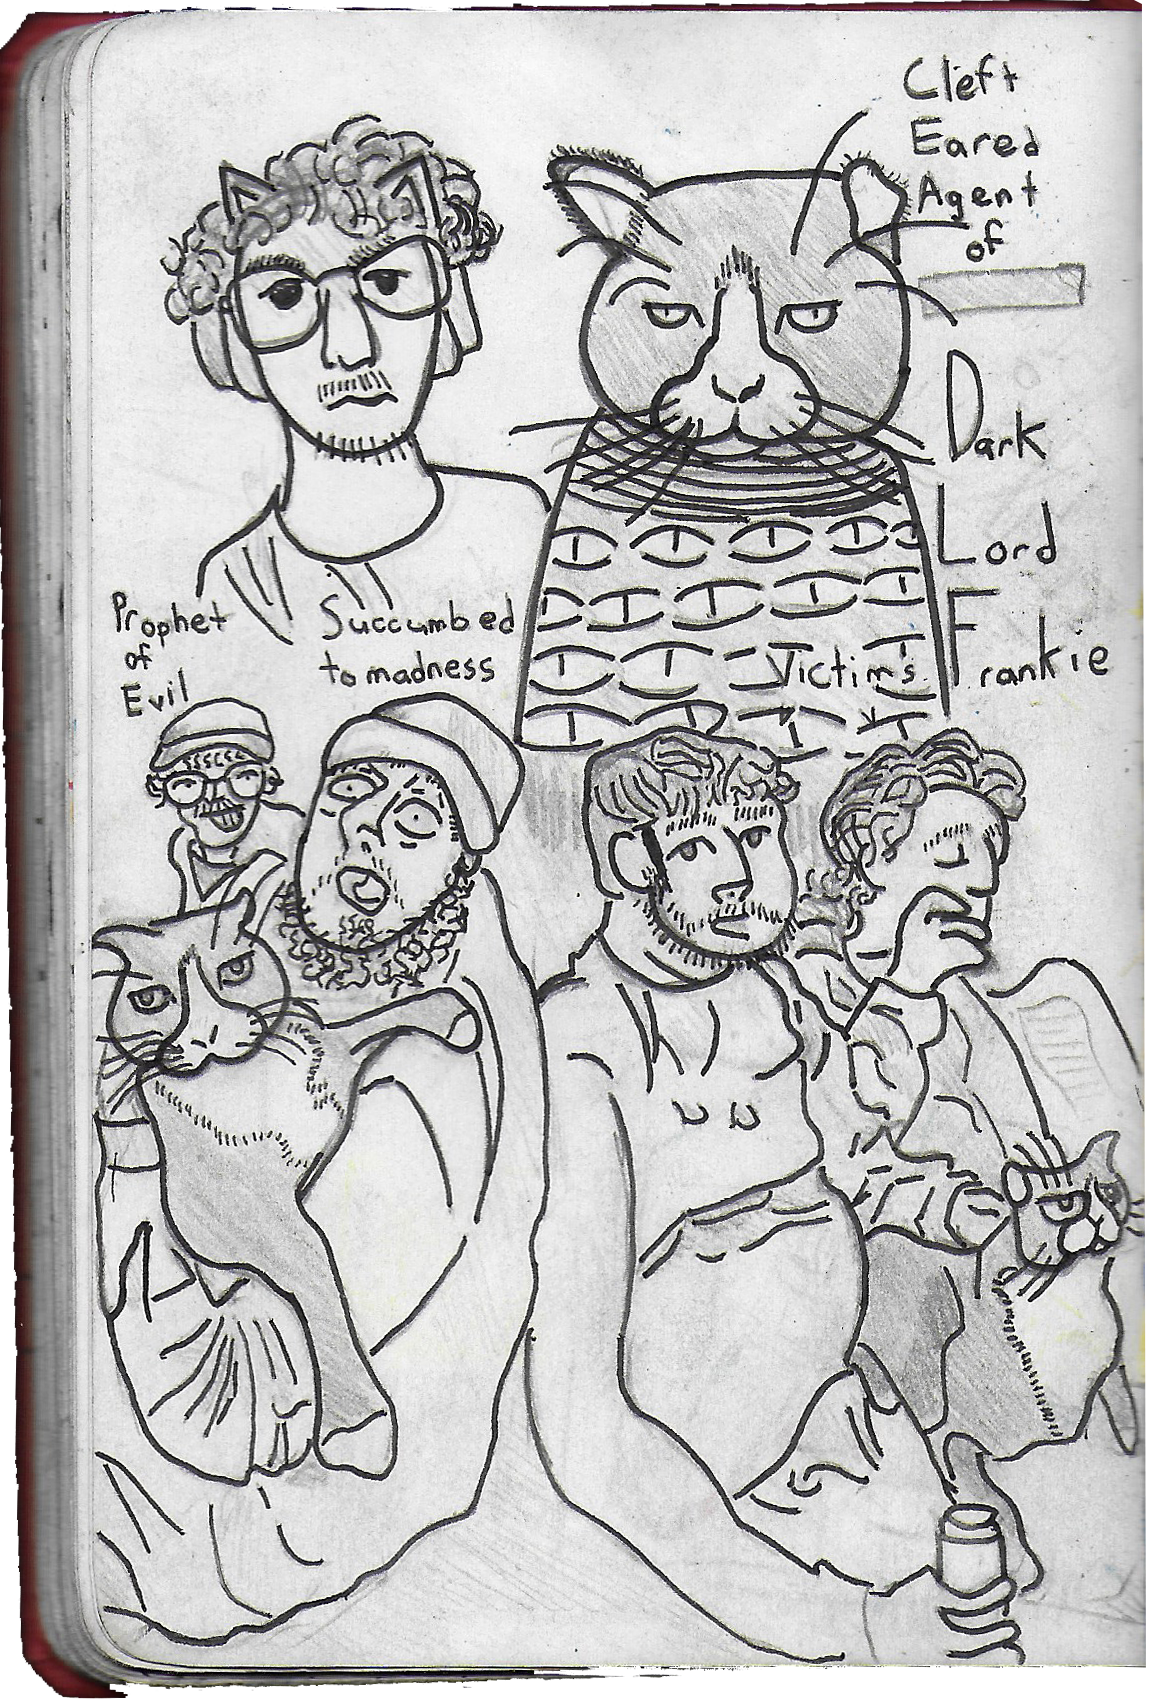 Cleft
Eared
Agent
of
Dark
Lord
Frankie
Prophet
of
Evil
Succumbed
to madness
Victims